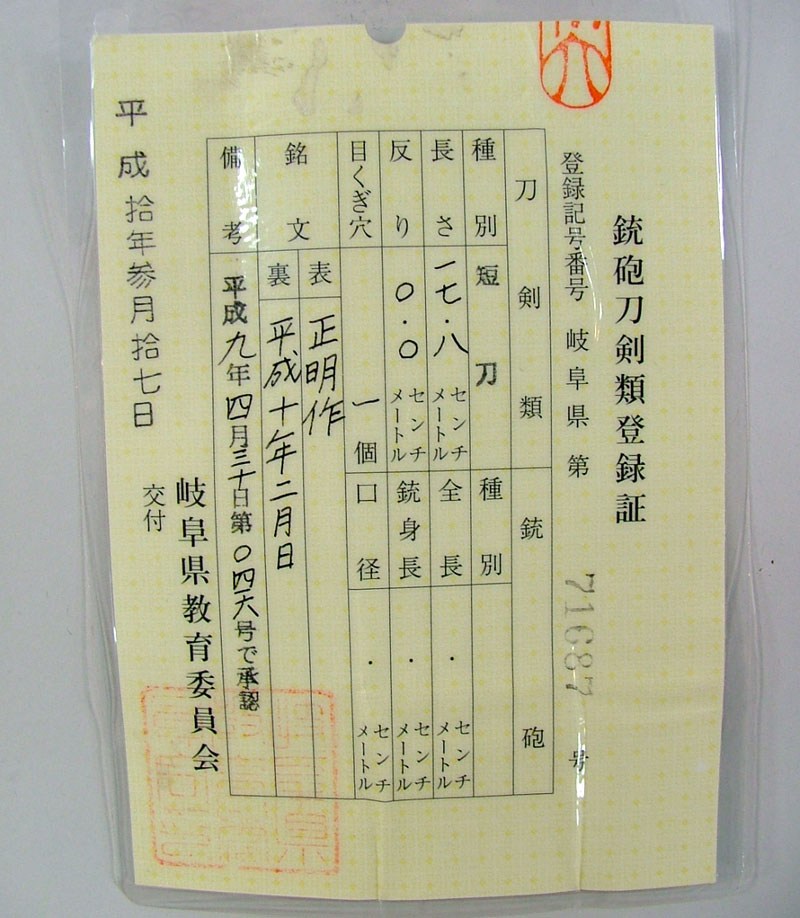 銃砲刀剣類登録証
登録記号番号 岐阜県 第 71687 号
刀剣類
銃砲
種別 短刀
種別
長さ 一七・八 センチメートル
全長 ・ センチメートル
反り 〇・〇 センチメートル
銃身長 ・ センチメートル
目くぎ穴 一個
口径 ・ センチメートル
銘文
表 正明作
裏 平成十年二月日
備考 平成九年四月三十日第〇四六号で承認
岐阜県教育委員会
交付
平成拾年参月拾七日